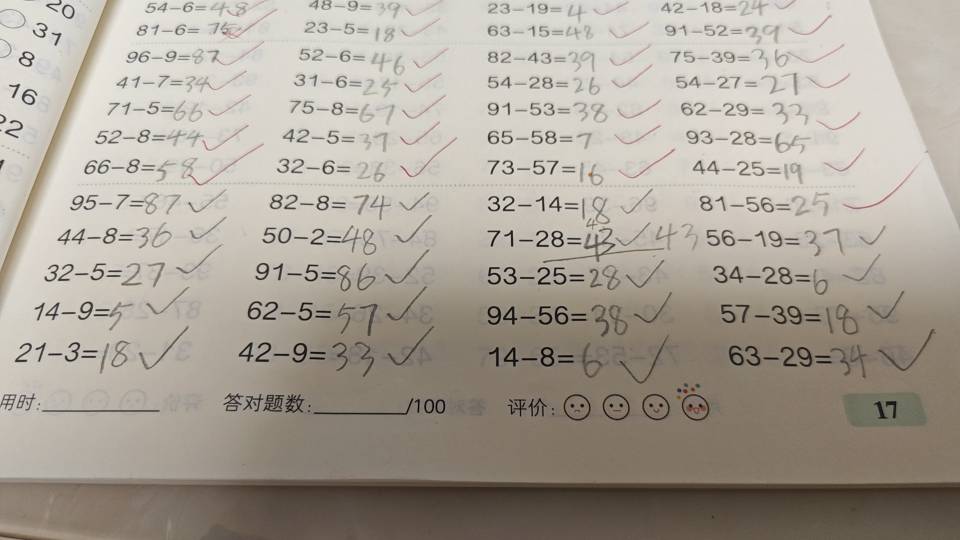 20 54-6=48 48-9=39 23-19=4 42-18=24
31 81-6=75 23-5=18 63-15=48 91-52=39
8 96-9=87 52-6=46 82-43=39 75-39=36
16 41-7=34 31-6=25 54-28=26 54-27=27
22 71-5=66 75-8=67 91-53=38 62-29=33
52-8=44 42-5=37 65-58=7 93-28=65
66-8=58 32-6=26 73-57=16 44-25=19
95-7=87 82-8=74 32-14=18 81-56=25
44-8=36 50-2=48 71-28=43 43 56-19=37
32-5=27 91-5=86 53-25=28 34-28=6
14-9=5 62-5=57 94-56=38 57-39=18
21-3=18 42-9=33 14-8=6 63-29=34
用时: 答对题数: /100 评价:
17